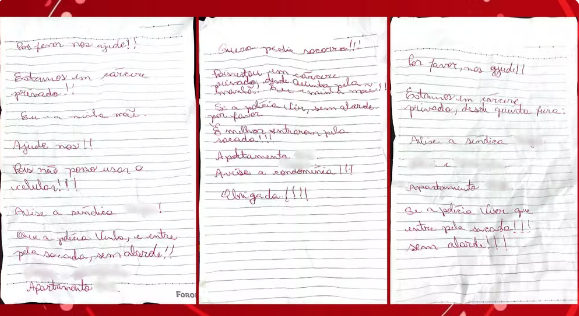 Por favor nos ajude!!
Estamos em carcere
privado!!
Eu e a minha mãe.
Ajude nos!!
Pois não posso usar o
celular!!!
Avise a síndica !
que a polícia venha, e entre
pela sacada, sem alarde!!
Apartamento
Quero pedir socorro!!!
Pois estou em carcere
privado, desde Quinta pela
manhã. Eu e minha mãe!
Se a polícia vier, sem alarde
por favor
É melhor entrarem pela
sacada!!!
Apartamento
Avise a condomínio!!!
Obrigada!!!!
Por favor, nos ajude!!
Estamos em carcere
privado, desde quinta feira.
Avise a síndica
e
Apartamento
Se a polícia vier que
entre pela sacada!!!
sem alarde!!!